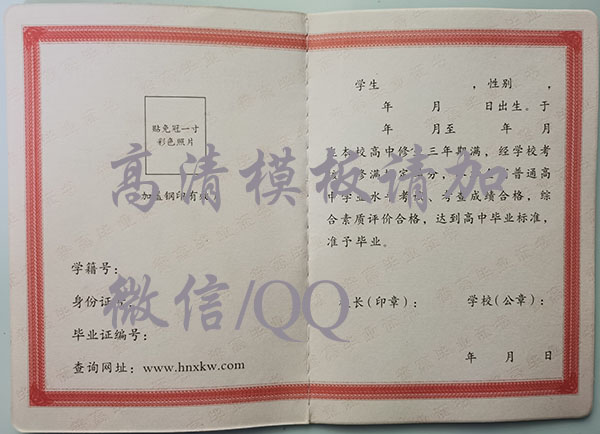 贴免冠一寸
彩色照片
加盖钢印有效
学籍号：
身份证号：
毕业证编号：
查询网址：www.hnxkw.com
学生 ，性别 ，
年 月 日出生。于
年 月至 年 月
在本校高中修业三年期满，经学校考
修满 分， 普通高
中学业水平考试、考查成绩合格，综
合素质评价合格，达到高中毕业标准，
准予毕业。
校长（印章）： 学校（公章）：
年 月 日
高清模板请加
微信/QQ